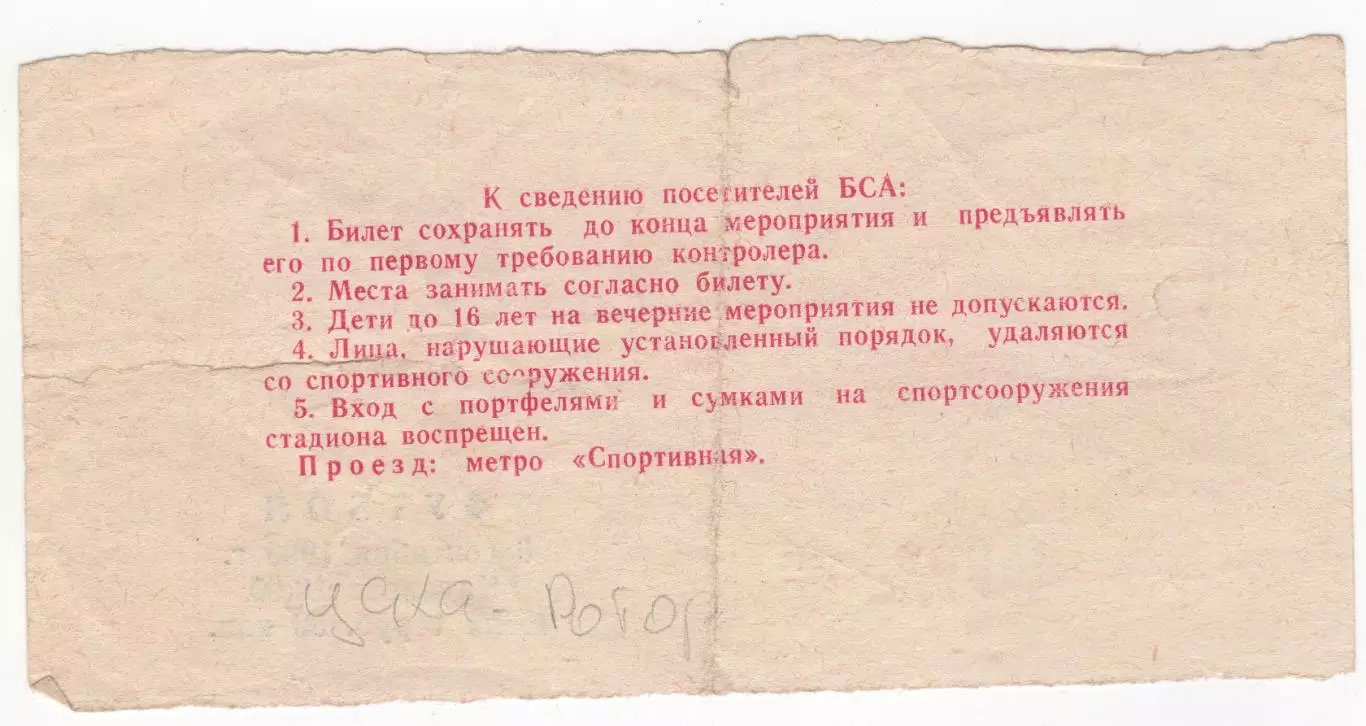 К сведению посетителей БСА:
1. Билет сохранять до конца мероприятия и предъявлять
его по первому требованию контролера.
2. Места занимать согласно билету.
3. Дети до 16 лет на вечерние мероприятия не допускаются.
4. Лица, нарушающие установленный порядок, удаляются
со спортивного сооружения.
5. Вход с портфелями и сумками на спортсооружения
стадиона воспрещен.
Проезд: метро «Спортивная».
ЦСКА - Ротор